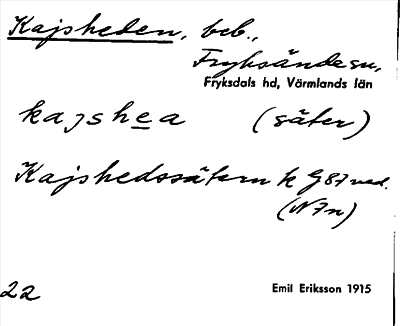 Kajsheden, beb.,
Fryksände sn,
Fryksdals hd, Värmlands län
kajshea (säter)
Kajshedssätern k G87 ved.
(N7n)
22
Emil Eriksson 1915